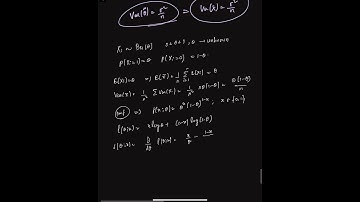 Var(θ̂) = σ²/n = Var(x̄) = σ²/n
Xi ~ Ber(θ) 0<θ<1, θ → unknown
P(Xi=1)=θ P(Xi=0)=1-θ
E(Xi)=θ E(x̄)=1/n Σ E(Xi)=θ
Var(x̄) = 1/n² Σ Var(Xi) = 1/n² nθ(1-θ) = θ(1-θ)/n
pmf ⇒ P(x;θ) = θ^x (1-θ)^(1-x); x ∈ {0,1}
l(θ;x) = x log θ + (1-x) log(1-θ)
s(θ;x) = ∂/∂θ l(θ;x) = x/θ - (1-x)/